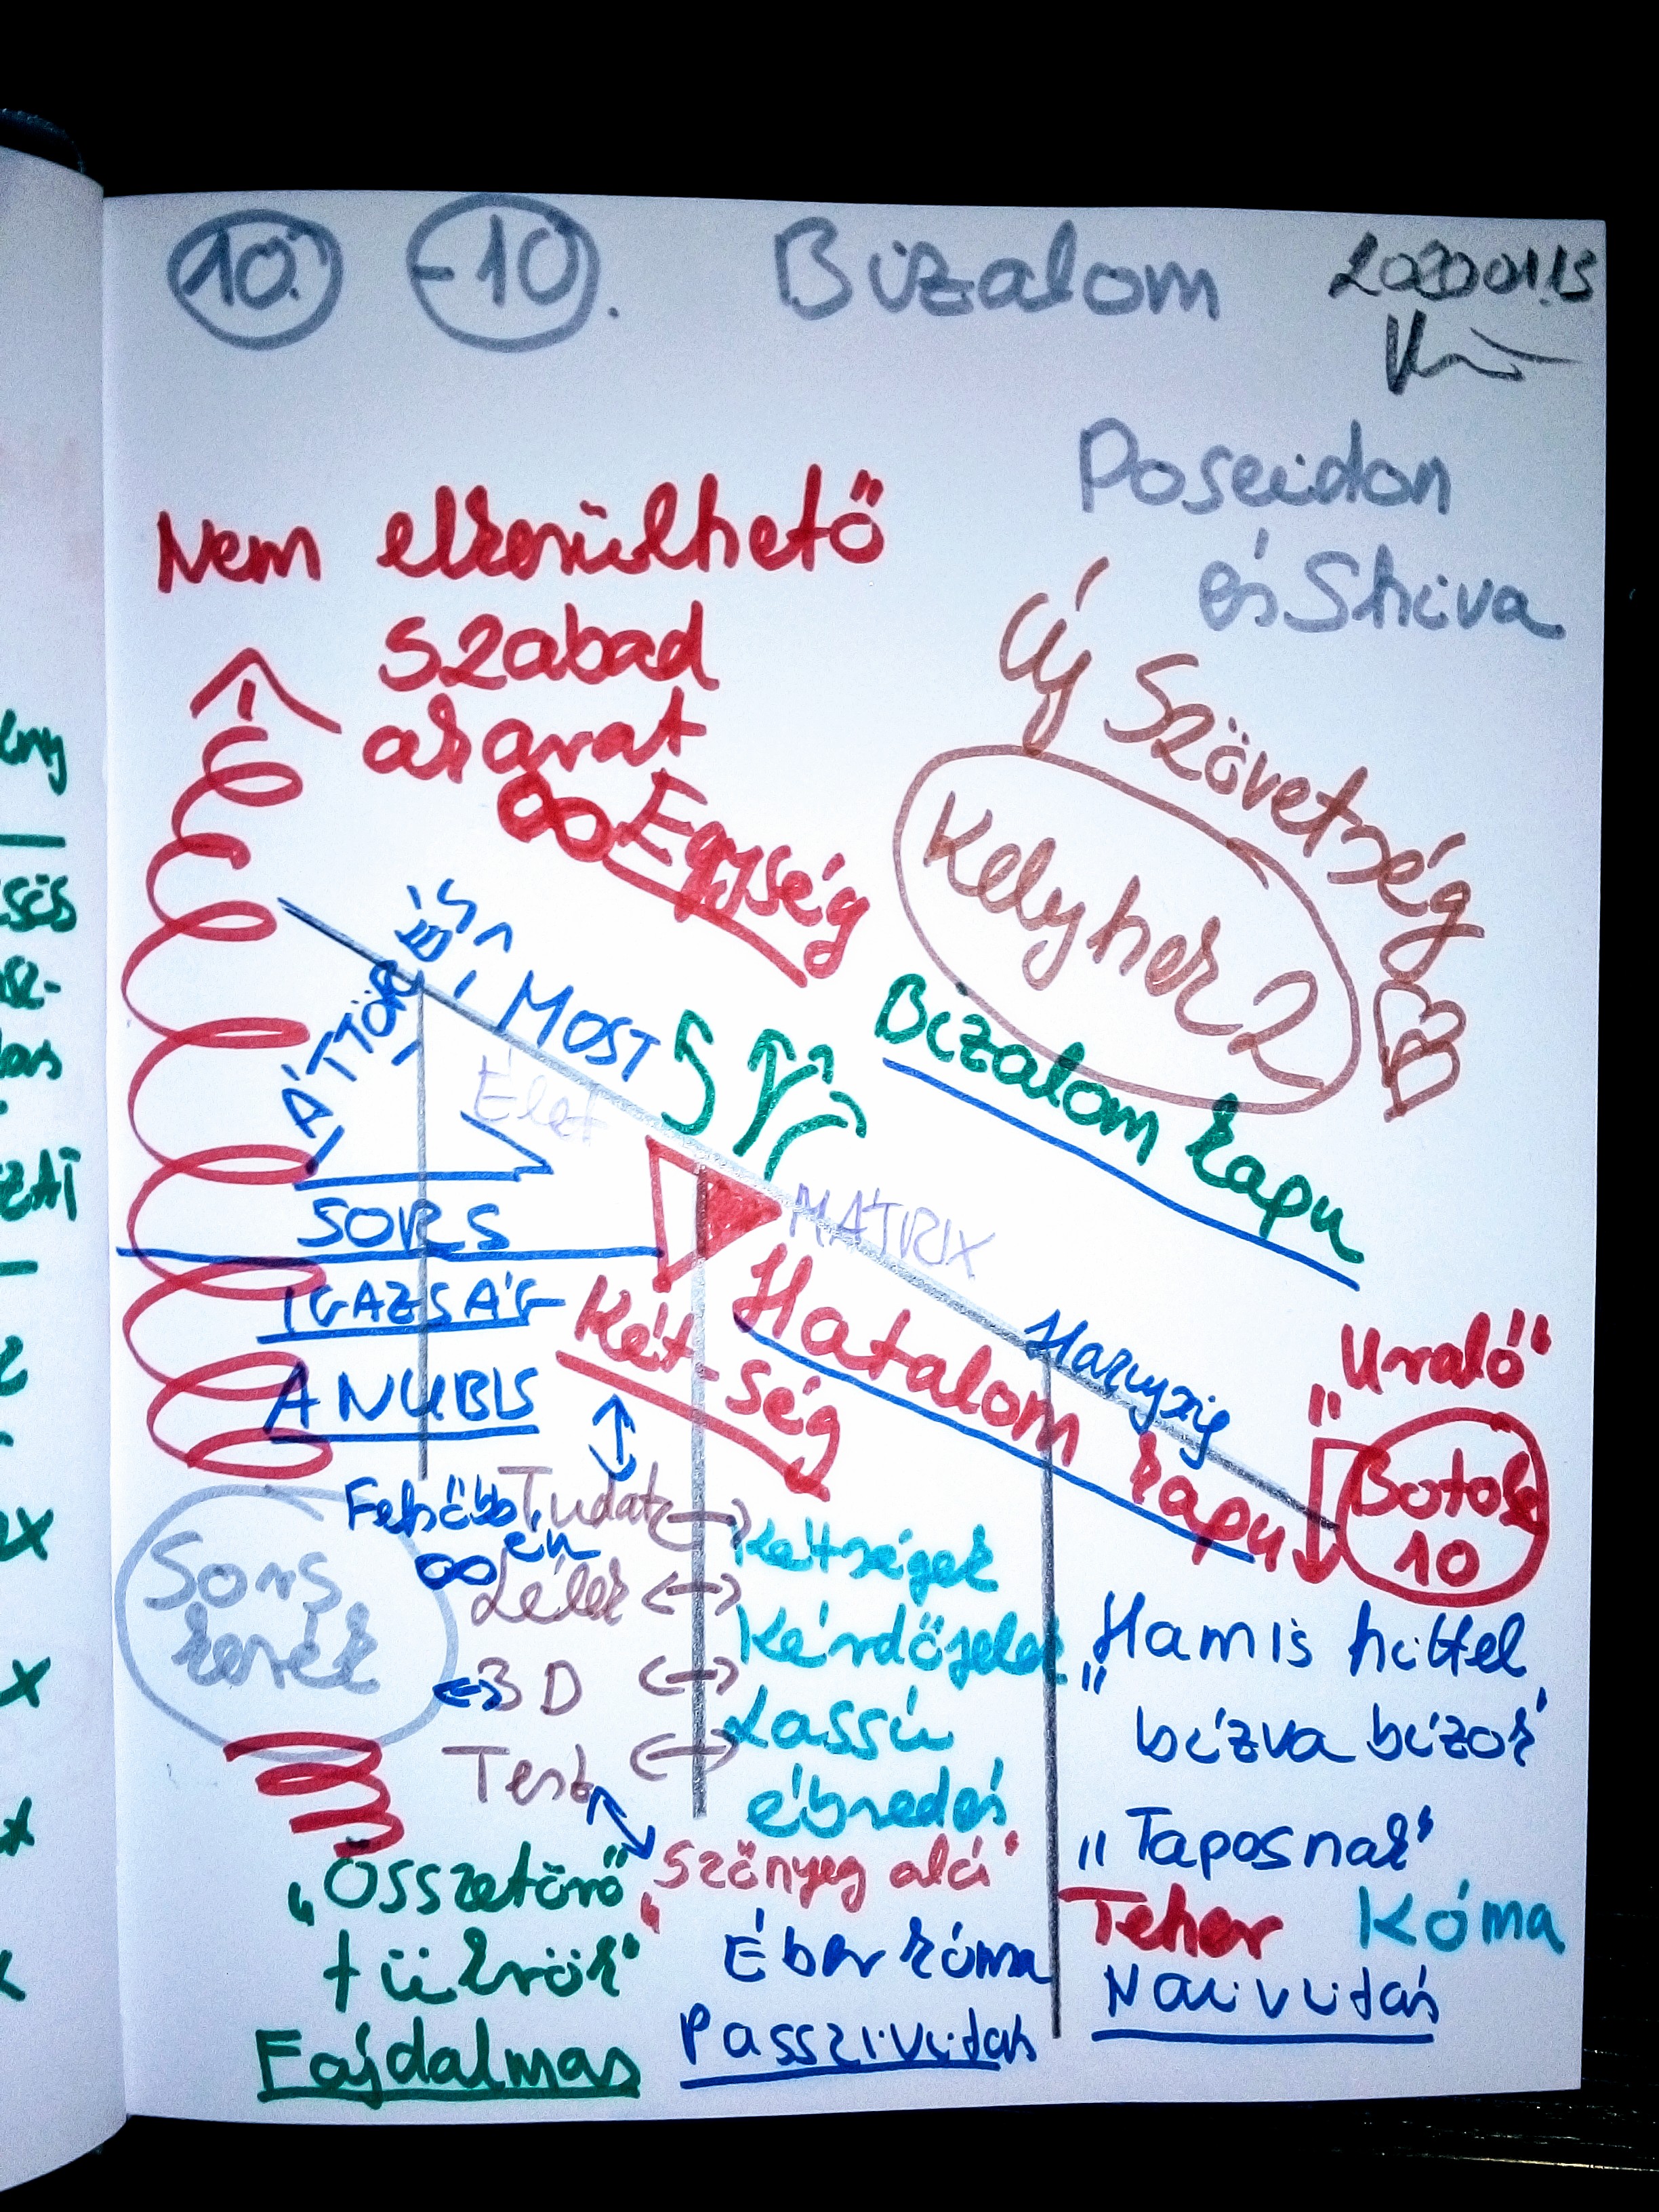 10. -10. Bizalom
2020.01.15
Poseidon
és Shiva
Nem elkerülhető
szabad
akarat
∞ Egység
Új Szövetség
Kelyhek 2
Bizalom kapu
ÁTTÖRÉS
MOST
Élet
MÁTRIX
SORS
IGAZSÁG
ANUBIS
Két-ség
Hatalom kapu
"Uraló"
Botok
10
Felsőbb
én
∞
Sors
kerék
Tudat
Lélek
3D
Test
Kétségek
Kérdőjelek
Lassú
ébredés
"Hamis hittel
bízva bízok"
„Taposnak"
Teher Kóma
Naivitás
„Szőnyeg alá"
Éber kóma
Passzivitás
„Összetörő
tükrök"
Fájdalmas
ény
sés
ZAT
x
x